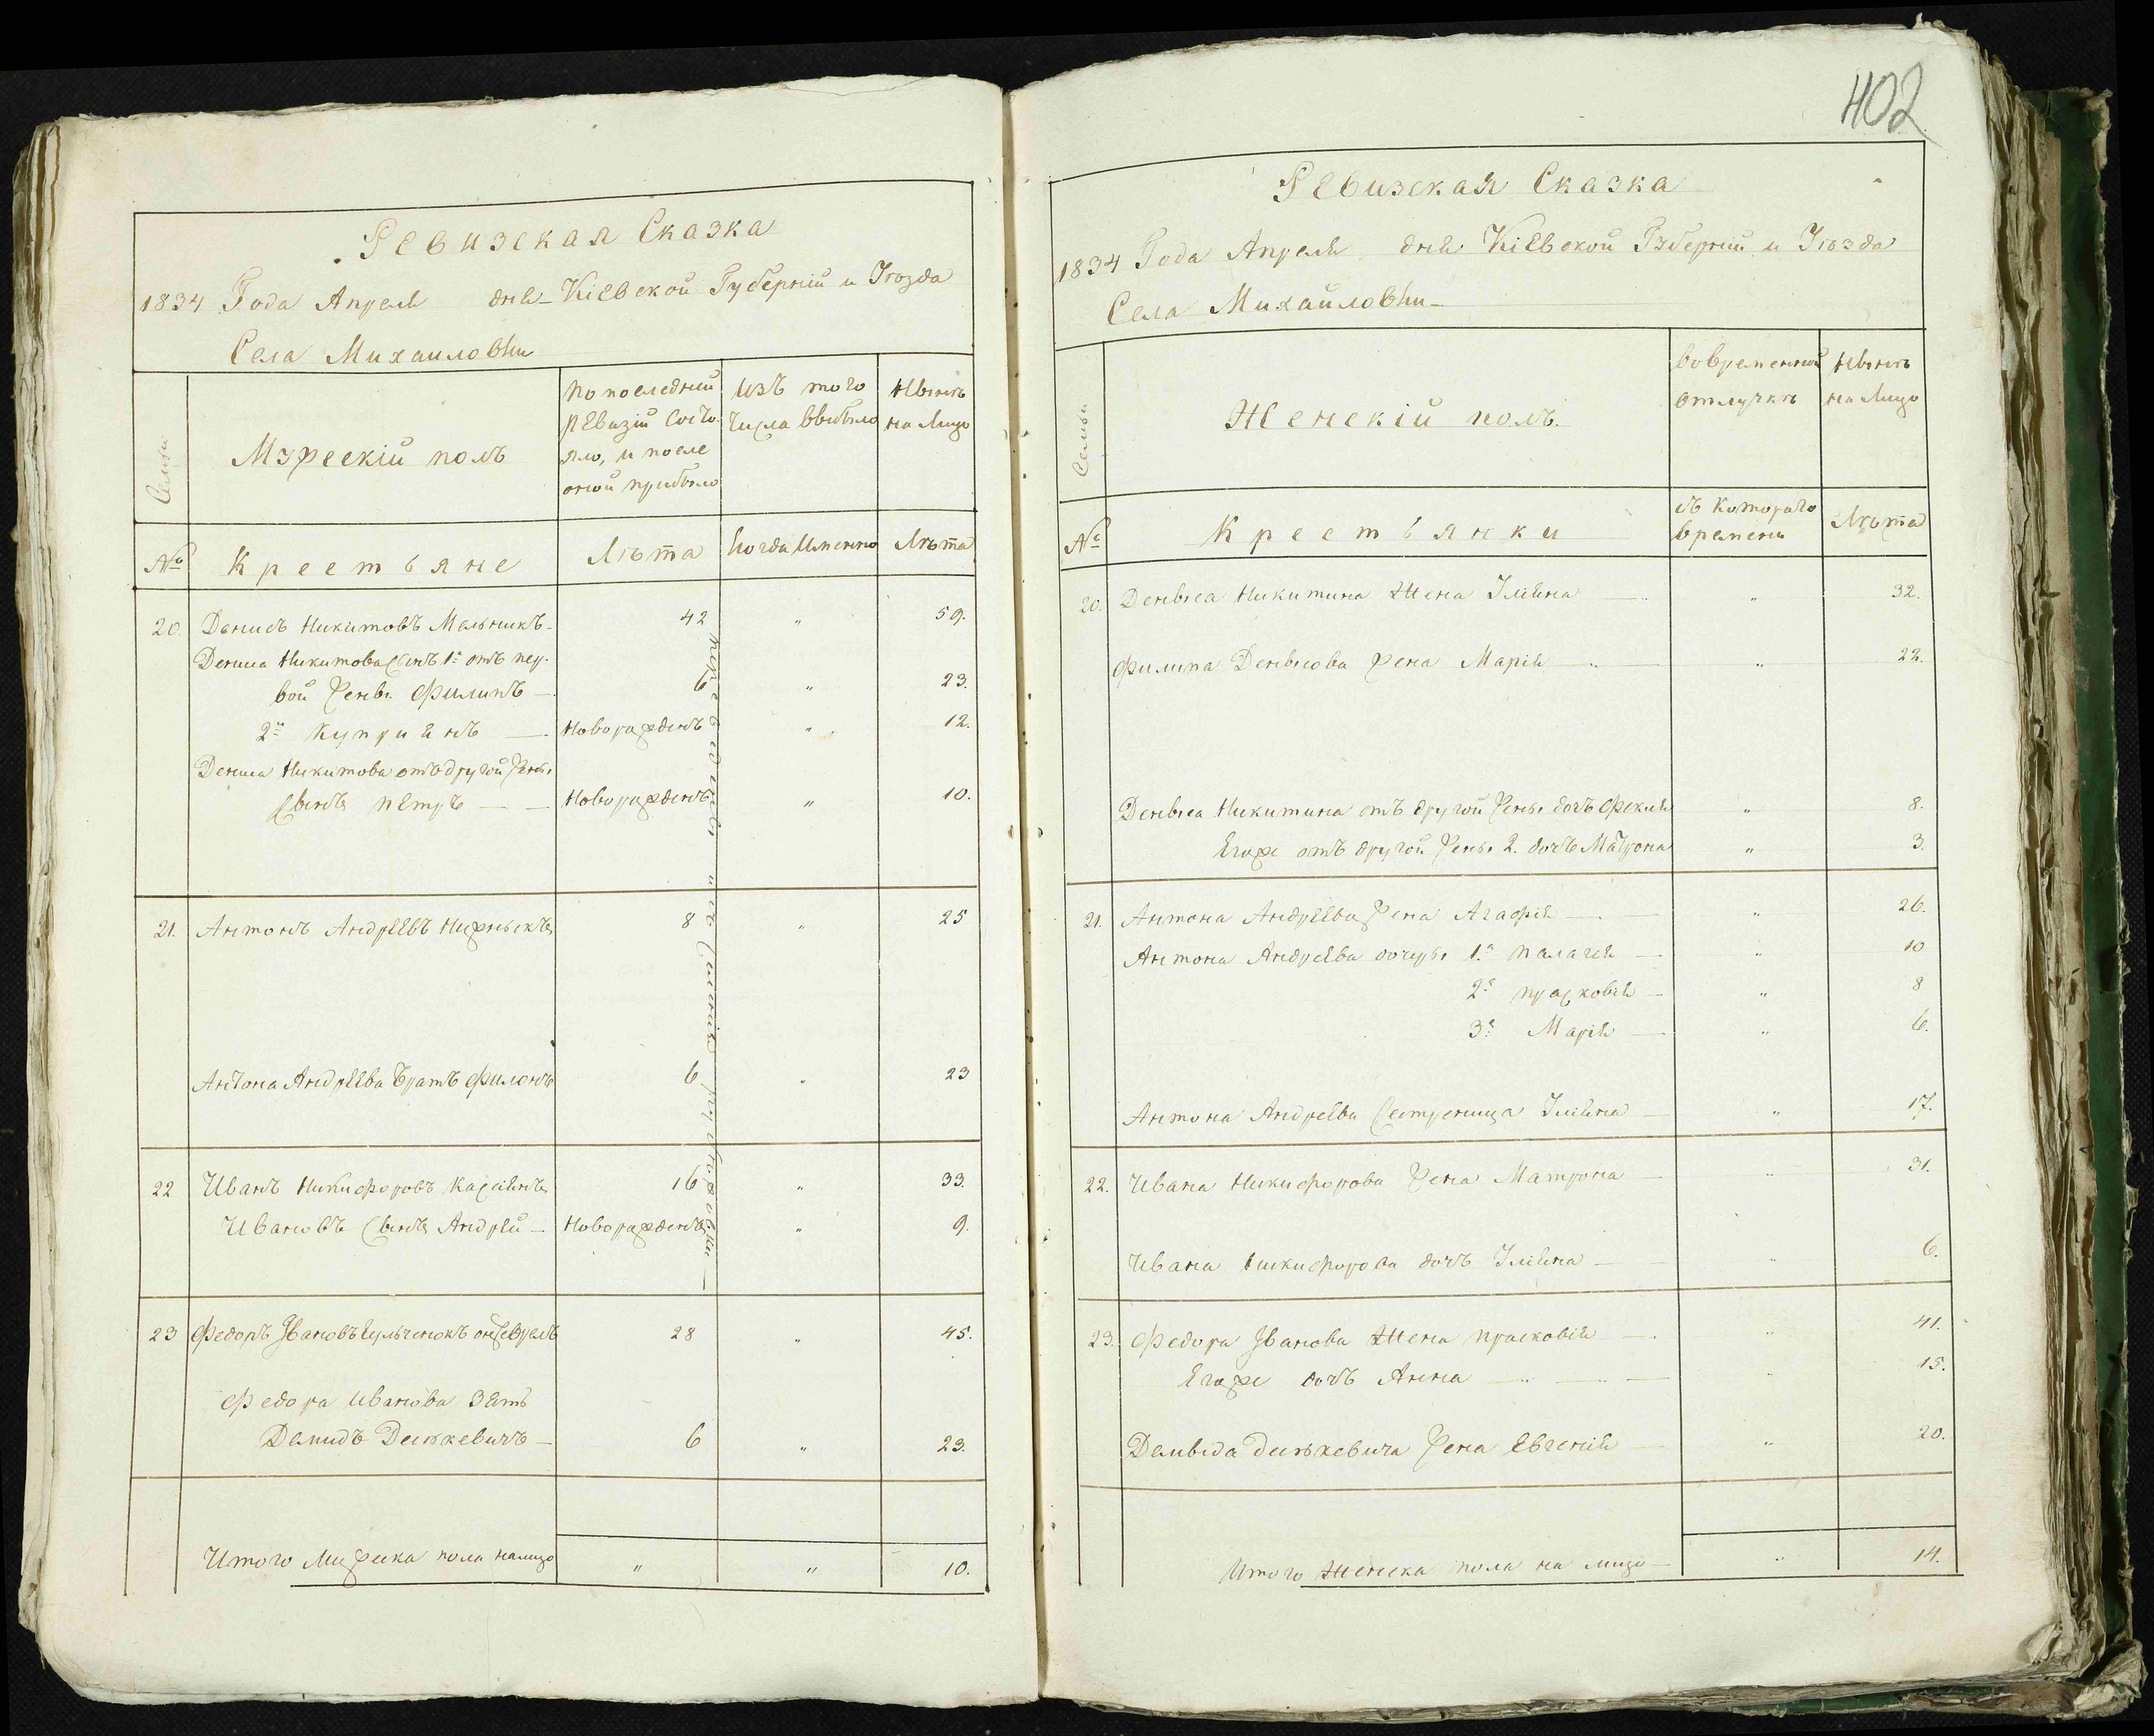 402
Ревизская Сказка
1834 Года Апреля дня Кіевской Губерніи и Уѣзда
Села Михаиловки
Семьи
Мужескій полъ
По последней
ревизіи состо-
яло, и после
оной прибыло
Изъ того
Числа выбыло
Нынѣ
на Лицо
№
Крестьяне
Лѣта
Когда Именно
Лѣта
20. Денисъ Никитовъ Мельникъ 42 „ 59.
Дениса Никитова Сынъ 1й отъ пер-
вой Жены Филипъ 6 „ 23.
2й Купріянъ Новорожденъ „ 12.
Дениса Никитова отъ другой Жены
Сынъ Петръ Новорожденъ „ 10.
21. Антонъ Андреевъ 8 „ 25
Антона Андреева Братъ Филонъ 6 „ 23
22 Иванъ Никифоровъ Касянъ 16 „ 33.
Ивановъ Сынъ Андрей Новорожденъ „ 9.
23 Федоръ Ивановъ 28 „ 45.
Федора Иванова Зять
Демидъ Деикевичъ 6 „ 23.
Итого Мужска пола налицо „ „ 10.
Ревизская Сказка
1834 Года Апреля дня Кіевской Губерніи и Уѣзда
Села Михайловки
Семьи
Женскій полъ.
Вовременной
отлучкѣ
Нынѣ
на Лицо
№
Крестьянки
съ Котораго
времени
Лѣта
20. Деныса Никитина Жена Уліяна „ 32.
Филипа Денысова Жена Марія „ 22.
Деныса Никитина отъ другой Жены дочъ Феклія „ 8.
Егоже отъ другой Жены 2. дочъ Матрона „ 3.
21. Антона Андреева Жена Агафія „ 26.
Антона Андреева дочеры 1я Палагея „ 10
2я Прасковія „ 8
3я Марія „ 6.
Антона Андреева Сестреница Уліяна „ 17.
22. Ивана Никифорова Жена Матрона „ 31.
Ивана Никифорова дочъ Уліяна „ 6.
23. Федора Иванова Жена Прасковія „ 41.
Егоже дочъ Анна „ 15.
Демыда Деикевича Жена Евгенія „ 20.
Итого Женска пола на лицо „ 14.